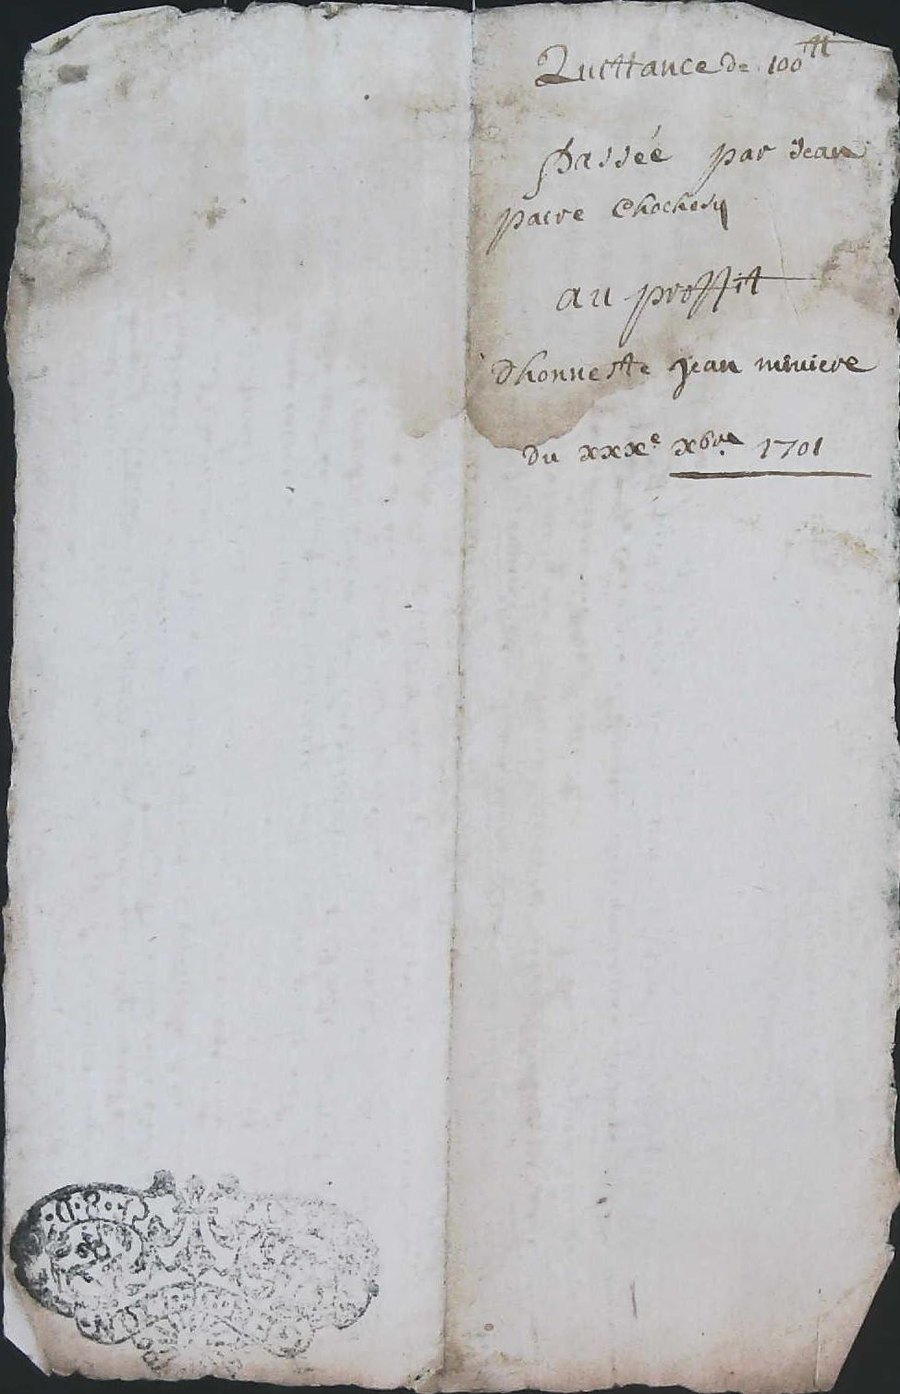 Quittance de 100tt
Passée par Jean
paire Chochoy
au proffit
dhonneste Jean miviere
du xxxe xbre 1701